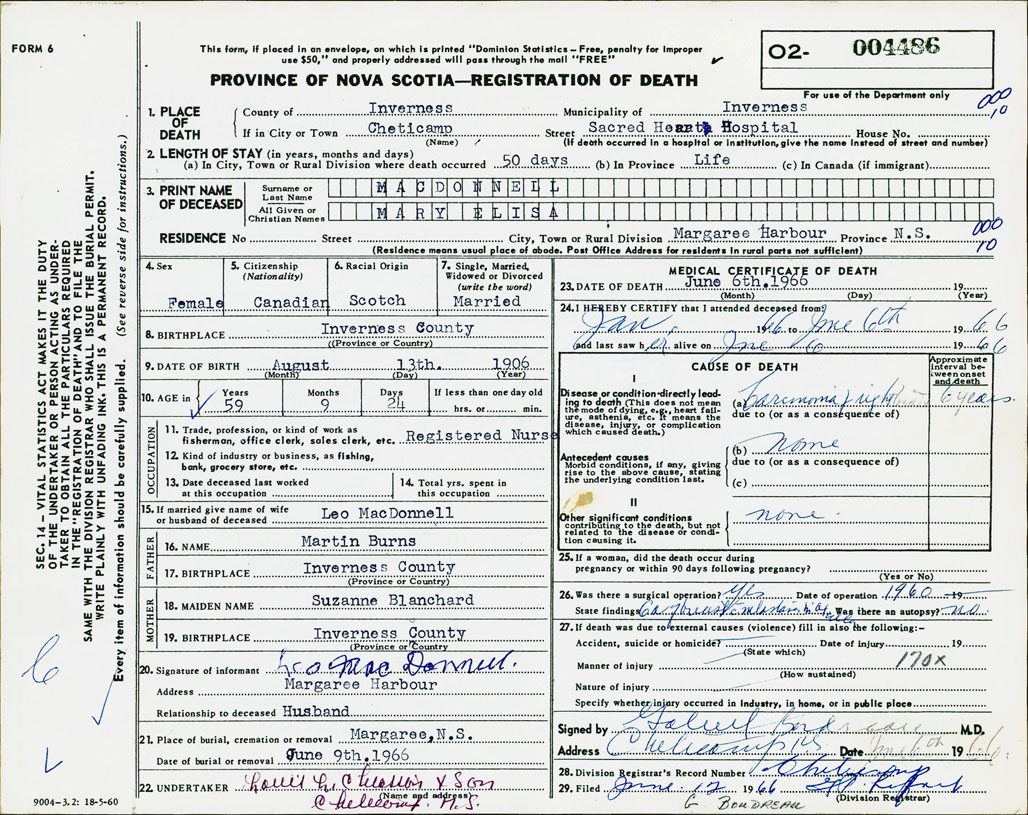 FORM 6
This form, if placed in an envelope, on which is printed "Dominion Statistics – Free, penalty for improper
use $50," and properly addressed will pass through the mail "FREE"
O2- 004486
For use of the Department only
PROVINCE OF NOVA SCOTIA—REGISTRATION OF DEATH
1. PLACE OF DEATH
County of Inverness Municipality of Inverness
000
10
If in City or Town Cheticamp Street Sacred Heart Hospital House No.
(Name) (If death occurred in a hospital or institution, give the name instead of street and number)
2. LENGTH OF STAY (in years, months and days)
(a) In City, Town or Rural Division where death occurred 50 days (b) In Province Life (c) In Canada (if immigrant)
3. PRINT NAME OF DECEASED
Surname or Last Name MACDONNELL
All Given or Christian Names MARY ELISA
000
10
RESIDENCE No Street City, Town or Rural Division Margaree Harbour Province N.S.
(Residence means usual place of abode. Post Office Address for residents in rural parts not sufficient)
4. Sex Female
5. Citizenship (Nationality) Canadian
6. Racial Origin Scotch
7. Single, Married, Widowed or Divorced (write the word) Married
8. BIRTHPLACE Inverness County
((Province or County)
9. DATE OF BIRTH August 13th. 1906
(Month) (Day) (Year)
10. AGE in Years 59 Months 9 Days 24 If less than one day old hrs. or min.
OCCUPATION
11. Trade, profession, or kind of work as
fisherman, office clerk, sales clerk, etc. Registered Nurse
12. Kind of industry or business, as fishing,
bank, grocery store, etc.
13. Date deceased last worked
at this occupation
14. Total yrs. spent in
this occupation
15. If married give name of wife
or husband of deceased Leo MacDonnell
FATHER
16. NAME Martin Burns
17. BIRTHPLACE Inverness County
(Province or Country)
MOTHER
18. MAIDEN NAME Suzanne Blanchard
19. BIRTHPLACE Inverness County
(Province or Country)
20. Signature of informant Leo MacDonnell.
Address Margaree Harbour
Relationship to deceased Husband
21. Place of burial, cremation or removal Margaree, N.S.
Date of burial or removal June 9th. 1966
22. UNDERTAKER & Son
(Name and address)
Cheticamp. N.S.
MEDICAL CERTIFICATE OF DEATH
23. DATE OF DEATH June 6th. 1966 19
(Month) (Day) (Year)
24. I HEREBY CERTIFY that I attended deceased from:
Jan 1966 to June 6th 1966
and last saw her alive on June 6 1966
CAUSE OF DEATH
Approximate interval between onset and death
I
Disease or condition directly leading to death (This does not mean
the mode of dying, e.g., heart failure, asthenia, etc. It means the
disease, injury, or complication
which caused death.)
(a) Carcinoma right 6 years.
due to (or as a consequence of)
(b) none
due to (or as a consequence of)
(c)
Antecedent causes
Morbid conditions, if any, giving
rise to the above cause, stating
the underlying condition last.
II
Other significant conditions
contributing to the death, but not
related to the disease or condition causing it.
none.
25. If a woman, did the death occur during
pregnancy or within 90 days following pregnancy?
(Yes or No)
26. Was there a surgical operation? yes Date of operation 1960 19
State findings Ca breast Was there an autopsy? no
27. If death was due to external causes (violence) fill in also the following:-
Accident, suicide or homicide? Date of injury 19
(State which)
Manner of injury 170X
(How sustained)
Nature of injury
Specify whether injury occurred in industry, in home, or in public place
Signed by M.D.
Address Cheticamp NS Date June 6th 1966.
28. Division Registrar's Record Number Cheticamp
29. Filed June 12 1966
(Division Registrar)
G. BOUDREAU
SEC. 14 – VITAL STATISTICS ACT MAKES IT THE DUTY
OF THE UNDERTAKER OR PERSON ACTING AS UNDERTAKER TO OBTAIN ALL THE PARTICULARS REQUIRED
IN THE "REGISTRATION OF DEATH" AND TO FILE THE
SAME WITH THE DIVISION REGISTRAR WHO SHALL ISSUE THE BURIAL PERMIT.
WRITE PLAINLY WITH UNFADING INK. THIS IS A PERMANENT RECORD.
Every item of information should be carefully supplied. (See reverse side for instructions.)
6
9004-3.2: 18-5-60